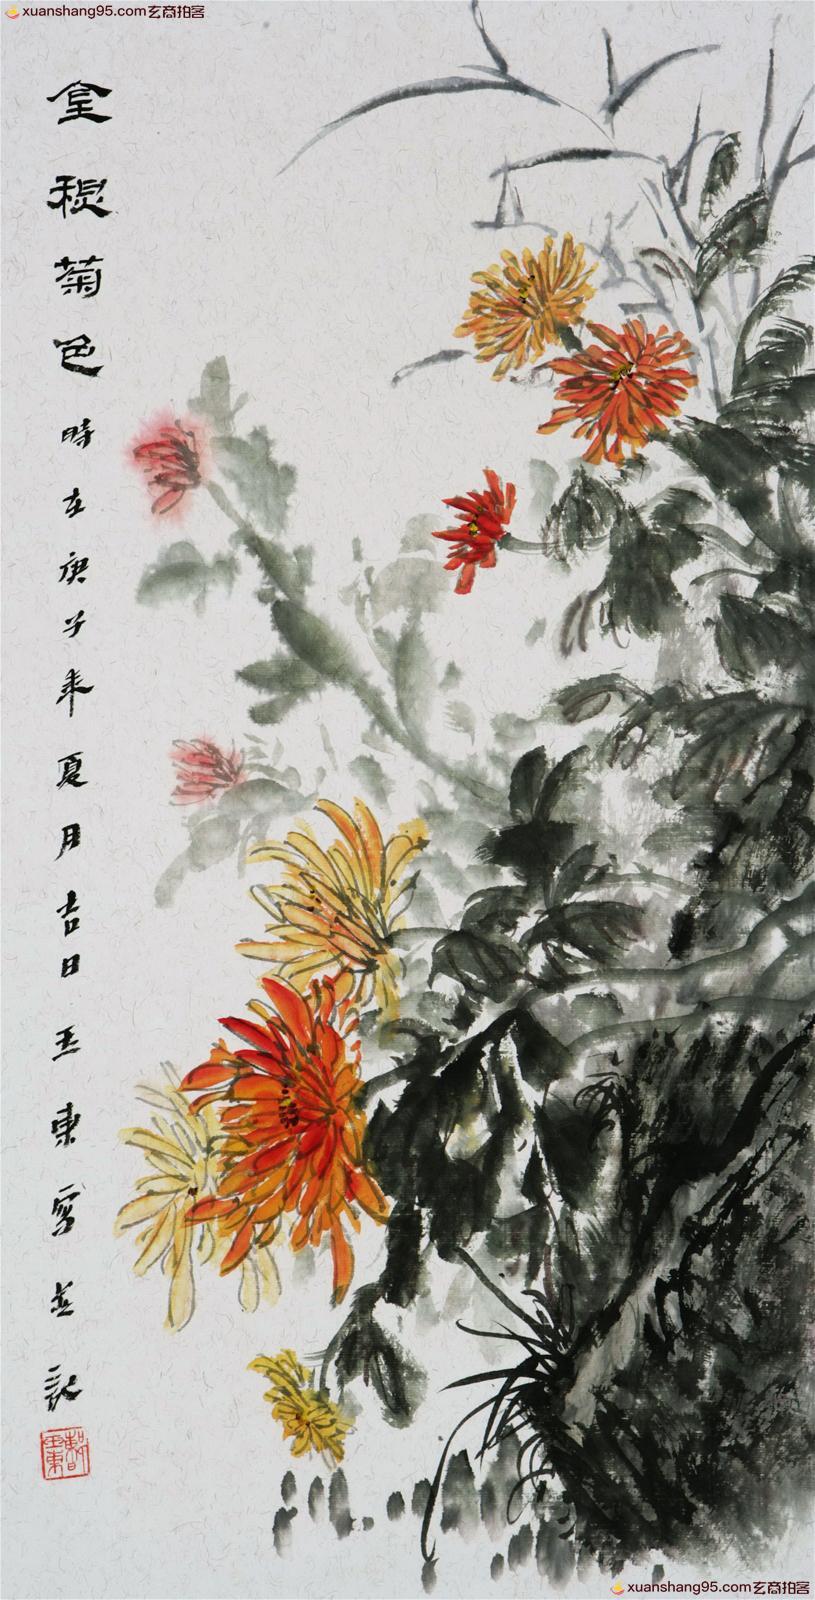 xuanshang95.com玄商拍客
金秋菊色 時在庚子年夏月吉日 王東寫並記
xuanshang95.com玄商拍客